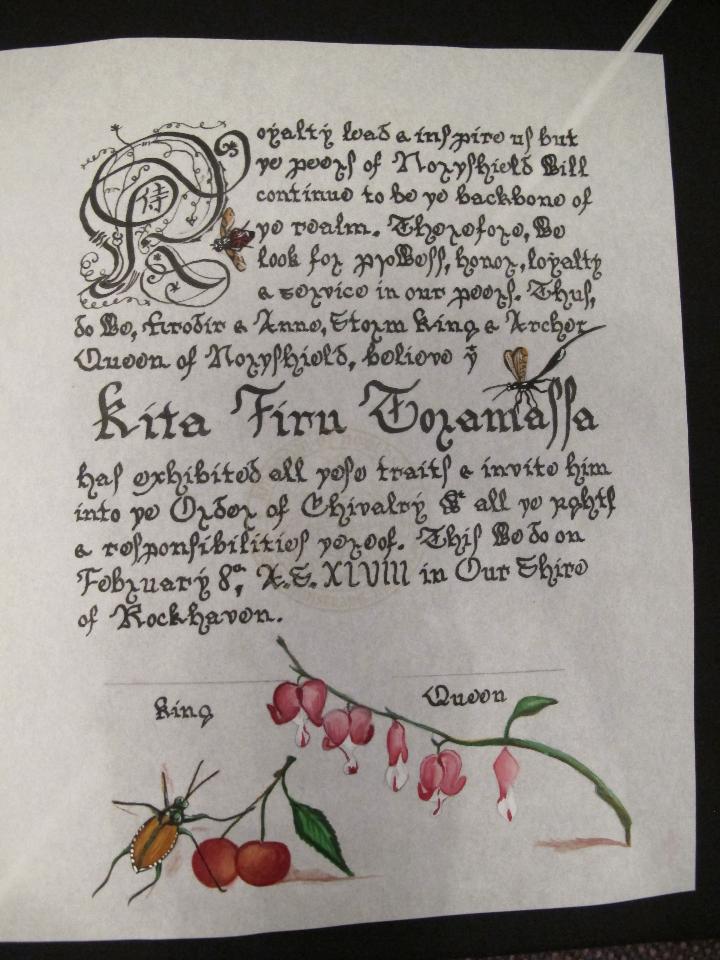 侍
Royalty lead & inspire us but
ye peers of Noryshield Will
continue to be ye backbone of
ye realm. Therefore, We
look for proWess, honor, loyalty
& service in our peers. Thus,
do We, Hrodir & Anne, Storm King & Archer
Queen of Noryshield, believe yt
Kita Jiru Toramassa
has exhibited all yese traits & invite him
into ye Order of Chivalry Wt all ye
& responsibilities yereof. This We do on
February 8th, A.S. XLVIII in Our Shire
of Rockhaven.
King
Queen